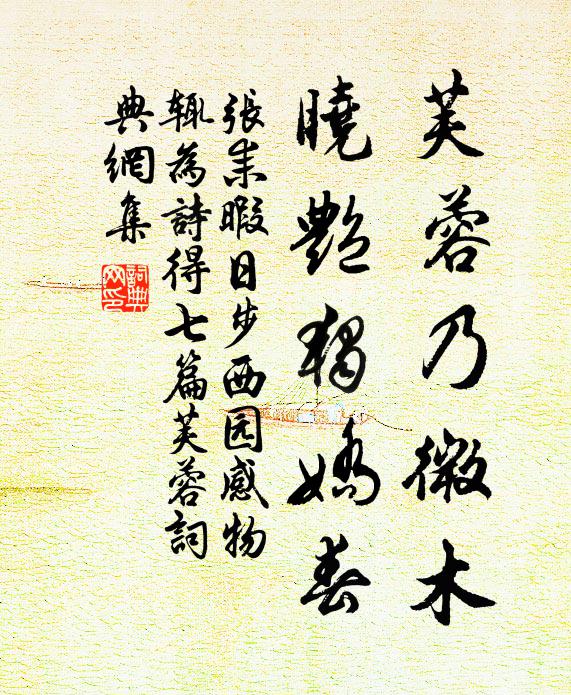 芙蓉乃微木
曉艷獨嬌春
張耒暇日步西园感物
輒為詩得七篇芙蓉詞
典網集
詞典
网印